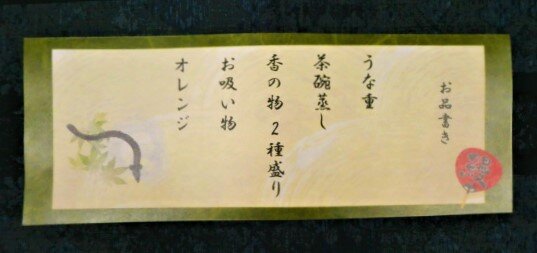 お品書き
うな重
茶碗蒸し
香の物 2種盛り
お吸い物
オレンジ